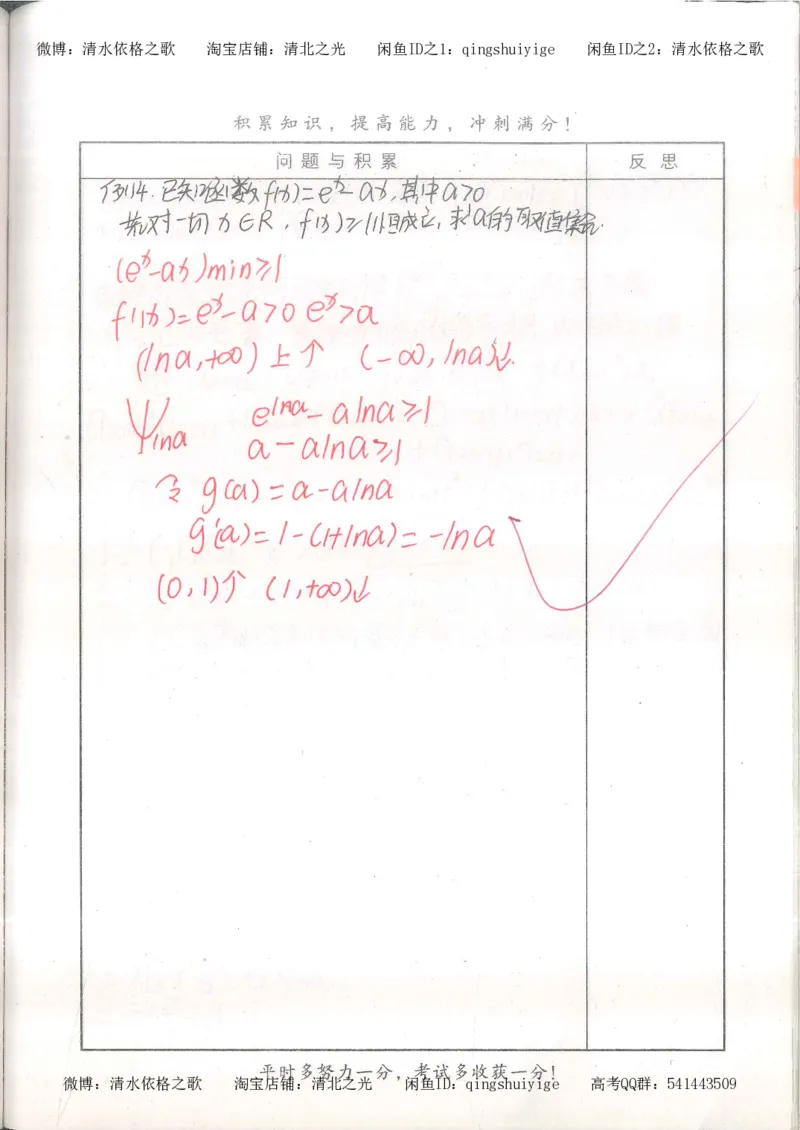 微博：清水依格之歌 淘宝店铺：清北之光 闲鱼ID之1：qingshuiyige 闲鱼ID之2：清水依格之歌
积累知识，提高能力，冲刺满分！
问题与积累 反思
例14.已知函数f(x)=eˣ-ax,其中a>0
若对一切x∈R，f(x)≥1恒成立,求a的取值集合.
(eˣ-ax)min≥1
f'(x)=eˣ-a>0 eˣ>a
(lna,+∞)上↑ (-∞,lna)↓.
lna e^lna-alna≥1
a-alna≥1
令g(a)=a-alna
g'(a)=1-(1+lna)=-lna
(0,1)↑ (1,+∞)↓
平时多努力一分，考试多收获一分！
微博：清水依格之歌 淘宝店铺：清北之光 闲鱼ID：qingshuiyige 高考QQ群：541443509